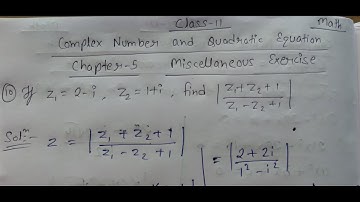 Class-11 Math
Complex Number and Quadratic Equation
Chapter-5 Miscellaneous Exercise
⑩ If z₁ = 2-i, z₂ = 1+i, find |(z₁+z₂+1)/(z₁-z₂+1)|
Solⁿ:- z = |(z₁+z₂+1)/(z₁-z₂+1)|
= |(2+2i)/(1²-i²)|